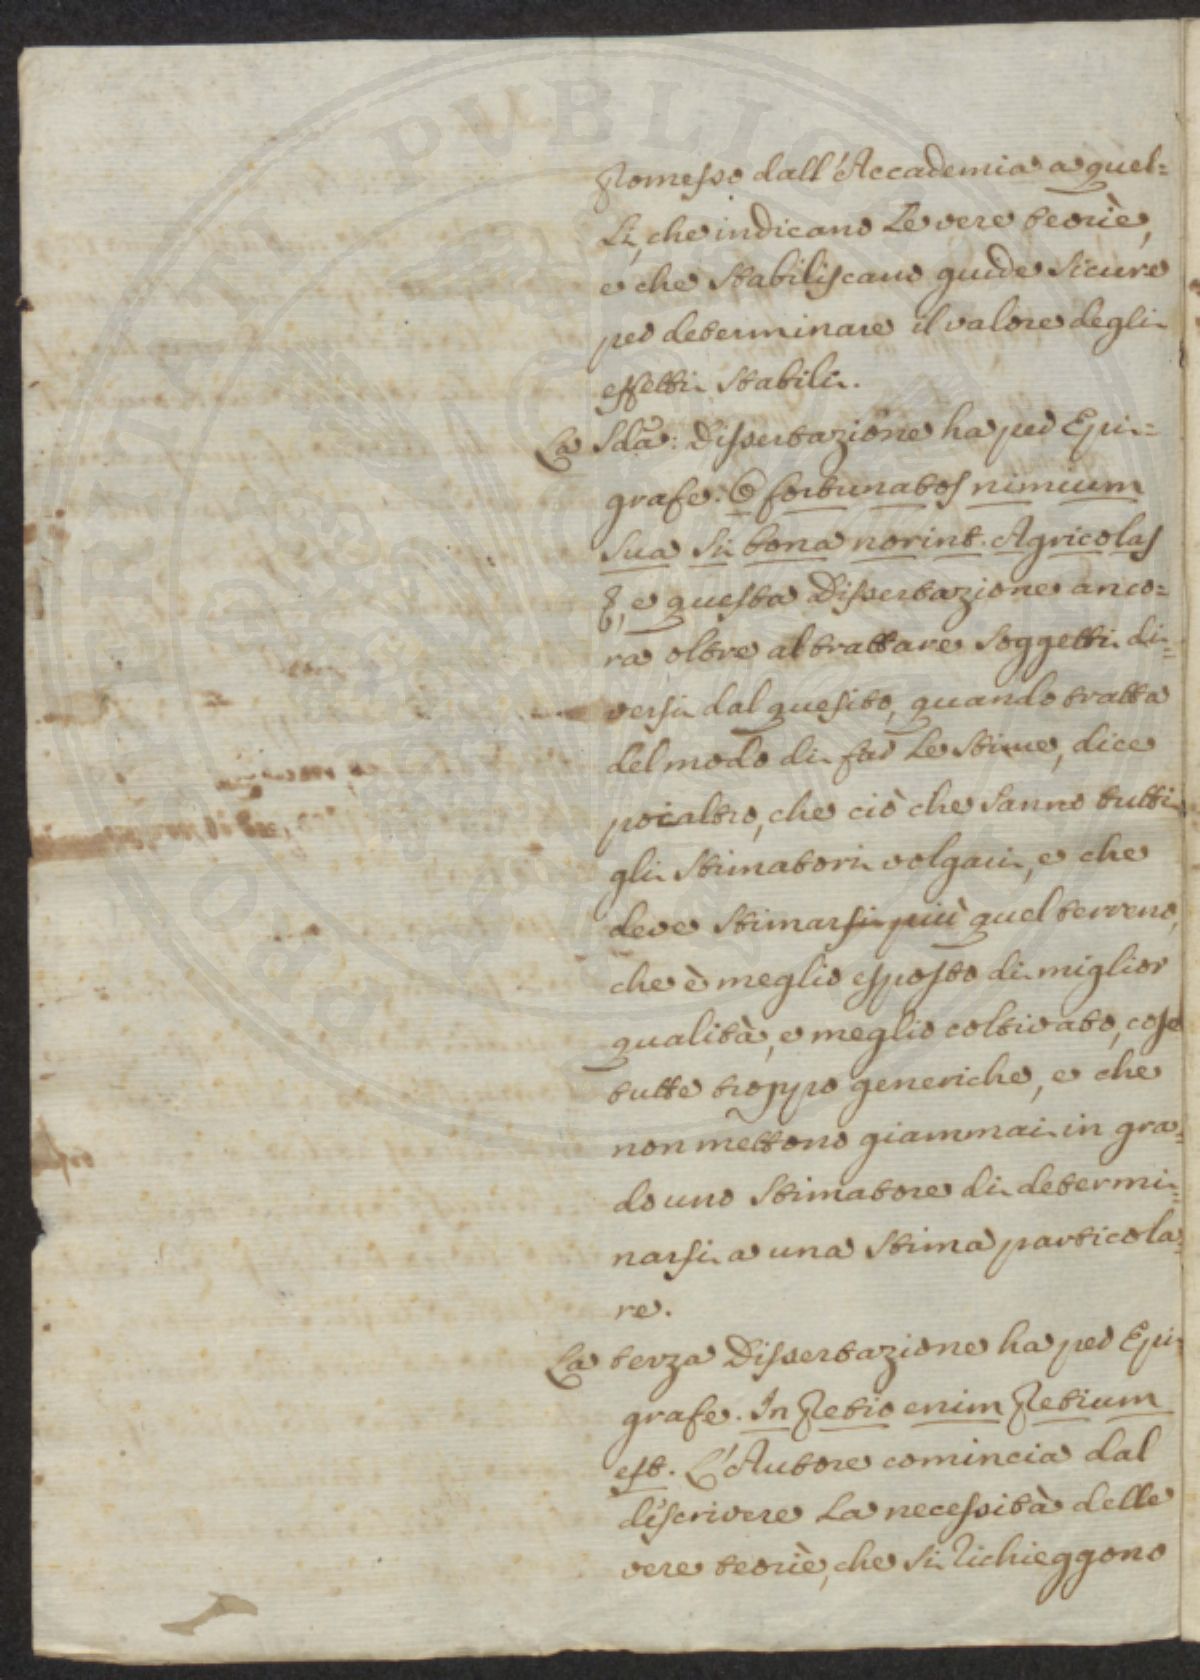 Promesso dall'Accademia a quel=
Li, che indicano Le vere teoriè,
e che stabiliscano guide sicure
per determinare il valore degli
effetti stabili.
La Sda: Dissertazione ha per Epi=
grafe. O fortunatos nimium
sua si bona norint. Agricolas
&, e questa Dissertazione anco=
ra oltre al trattare soggetti di=
versi dal quesito, quando tratta
del modo di far Le stime, dice
pocaltro, che ciò che sanno tutti
gli stimatori volgari, e che
deve stimarsi più quel terreno,
che è meglio esposto di miglior
qualità, e meglio coltivato, cose
tutte troppo generiche, e che
non mettono giammai in gra=
do uno stimatore di determi=
narsi a una stima particola
re.
La terza Dissertazione ha per Epi=
grafe. In Pretio enim Pretium
est. L'Autore comincia dal
discrivere La necessità delle
vere teoriè, che si richieggono